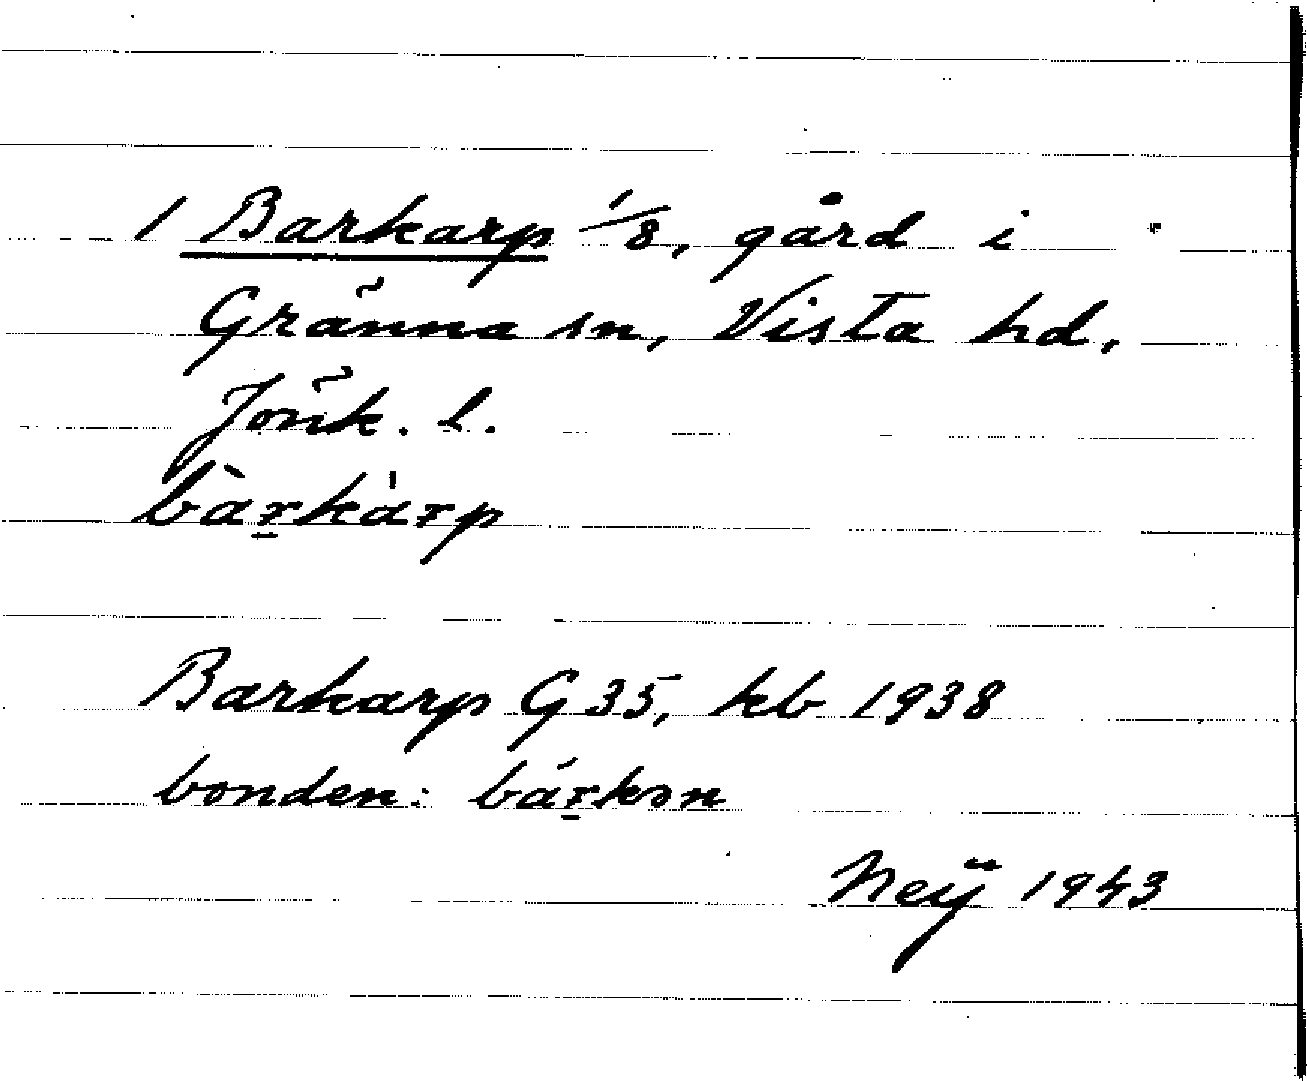 1 Barkarp 1/8, gård i
Gränna sn, Vista hd,
Jönk. l.
bàr̠kàrp
Barkarp G 35, kb 1938
bonden: bár̠kən
Neÿ 1943